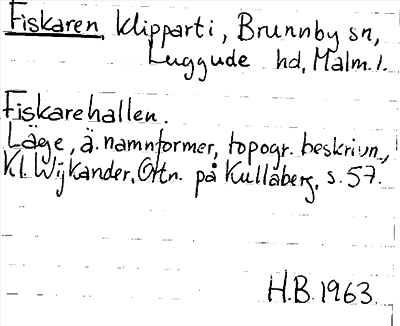 Fiskaren, klipparti, Brunnby sn,
Luggude hd, Malm. l.
Fiskarehallen.
Läge, ä. namnformer, topogr. beskrivn.,
Kl. Wijkander, Ortn. på Kullaberg, s. 57.
H.B. 1963